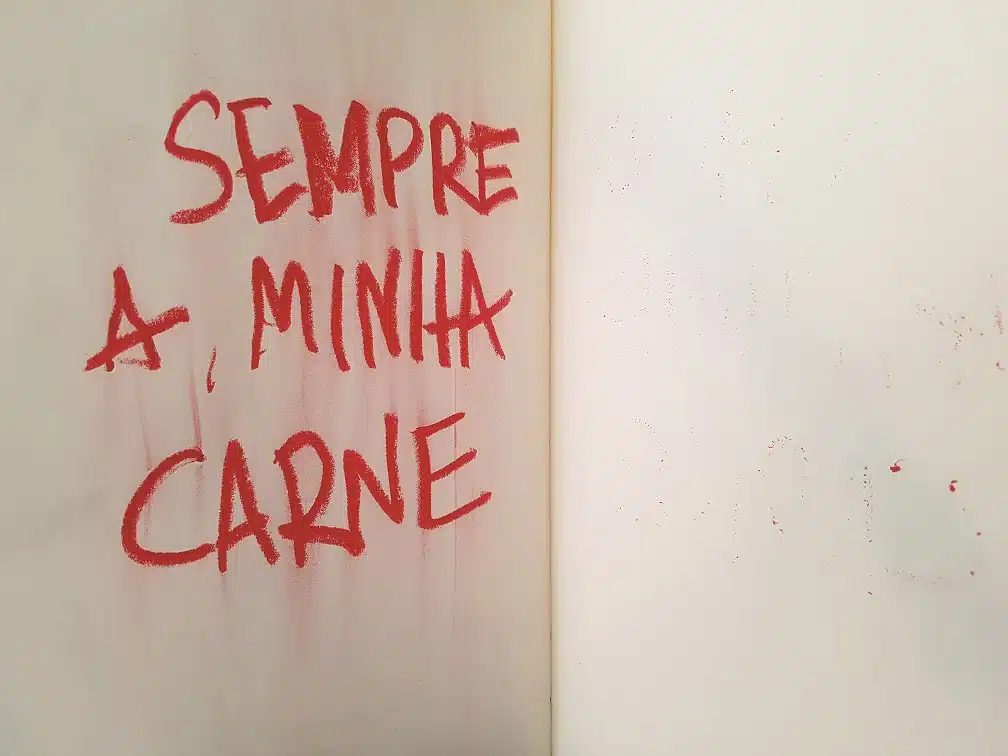 SEMPRE
A MINHA
CARNE